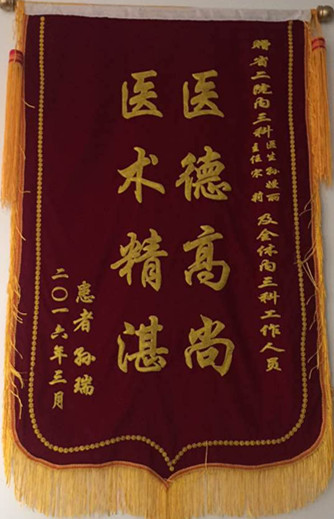 赠省二院内三科医生孙媛丽
主任宋莉
及全体内三科工作人员
医德高尚
医术精湛
患者孙瑞
二〇一六年三月